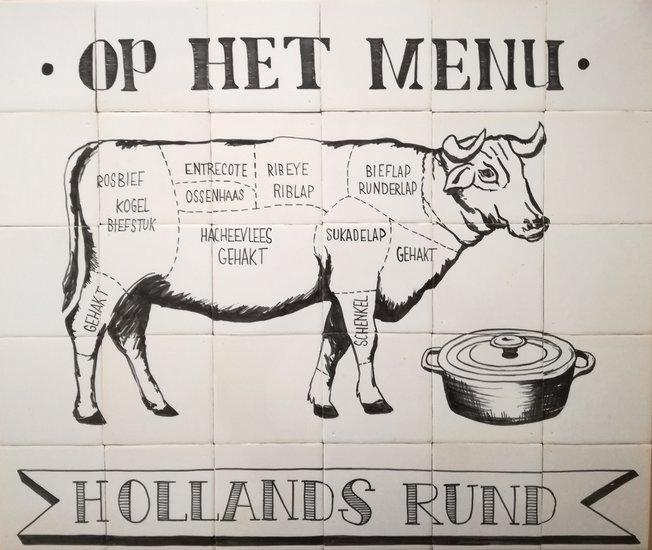 • OP HET MENU •
ROSBIEF
KOGEL
BIEFSTUK
ENTRECOTE
OSSENHAAS
RIBEYE
RIBLAP
BIEFLAP
RUNDERLAP
HACHEEVLEES
GEHAKT
SUKADELAP
GEHAKT
GEHAKT
SCHENKEL
HOLLANDS RUND